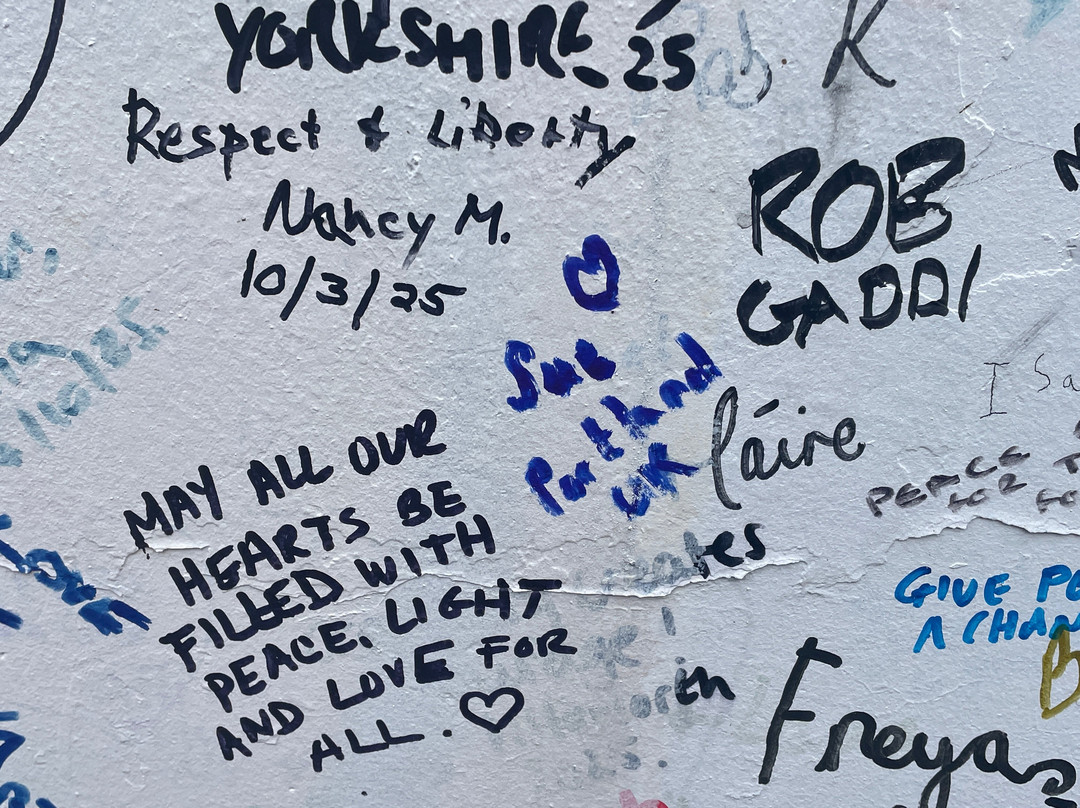 YORKSHIRE '25
K
Respect & Liberty
Nancy M.
10/3/25
ROB
GADDI
Sue
Parthand
UK
Claire
MAY ALL OUR
HEARTS BE
FILLED WITH
PEACE, LIGHT
AND LOVE FOR
ALL. ♡
I Sa
PEACE
GIVE PE
A CHAN
Freya